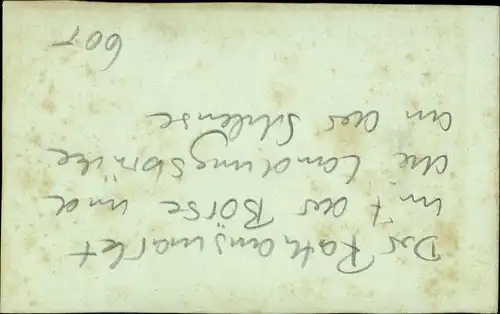 Der Rathausmarkt
mit der Börse und
die Landungsbrücke
an der Schleuse
60r